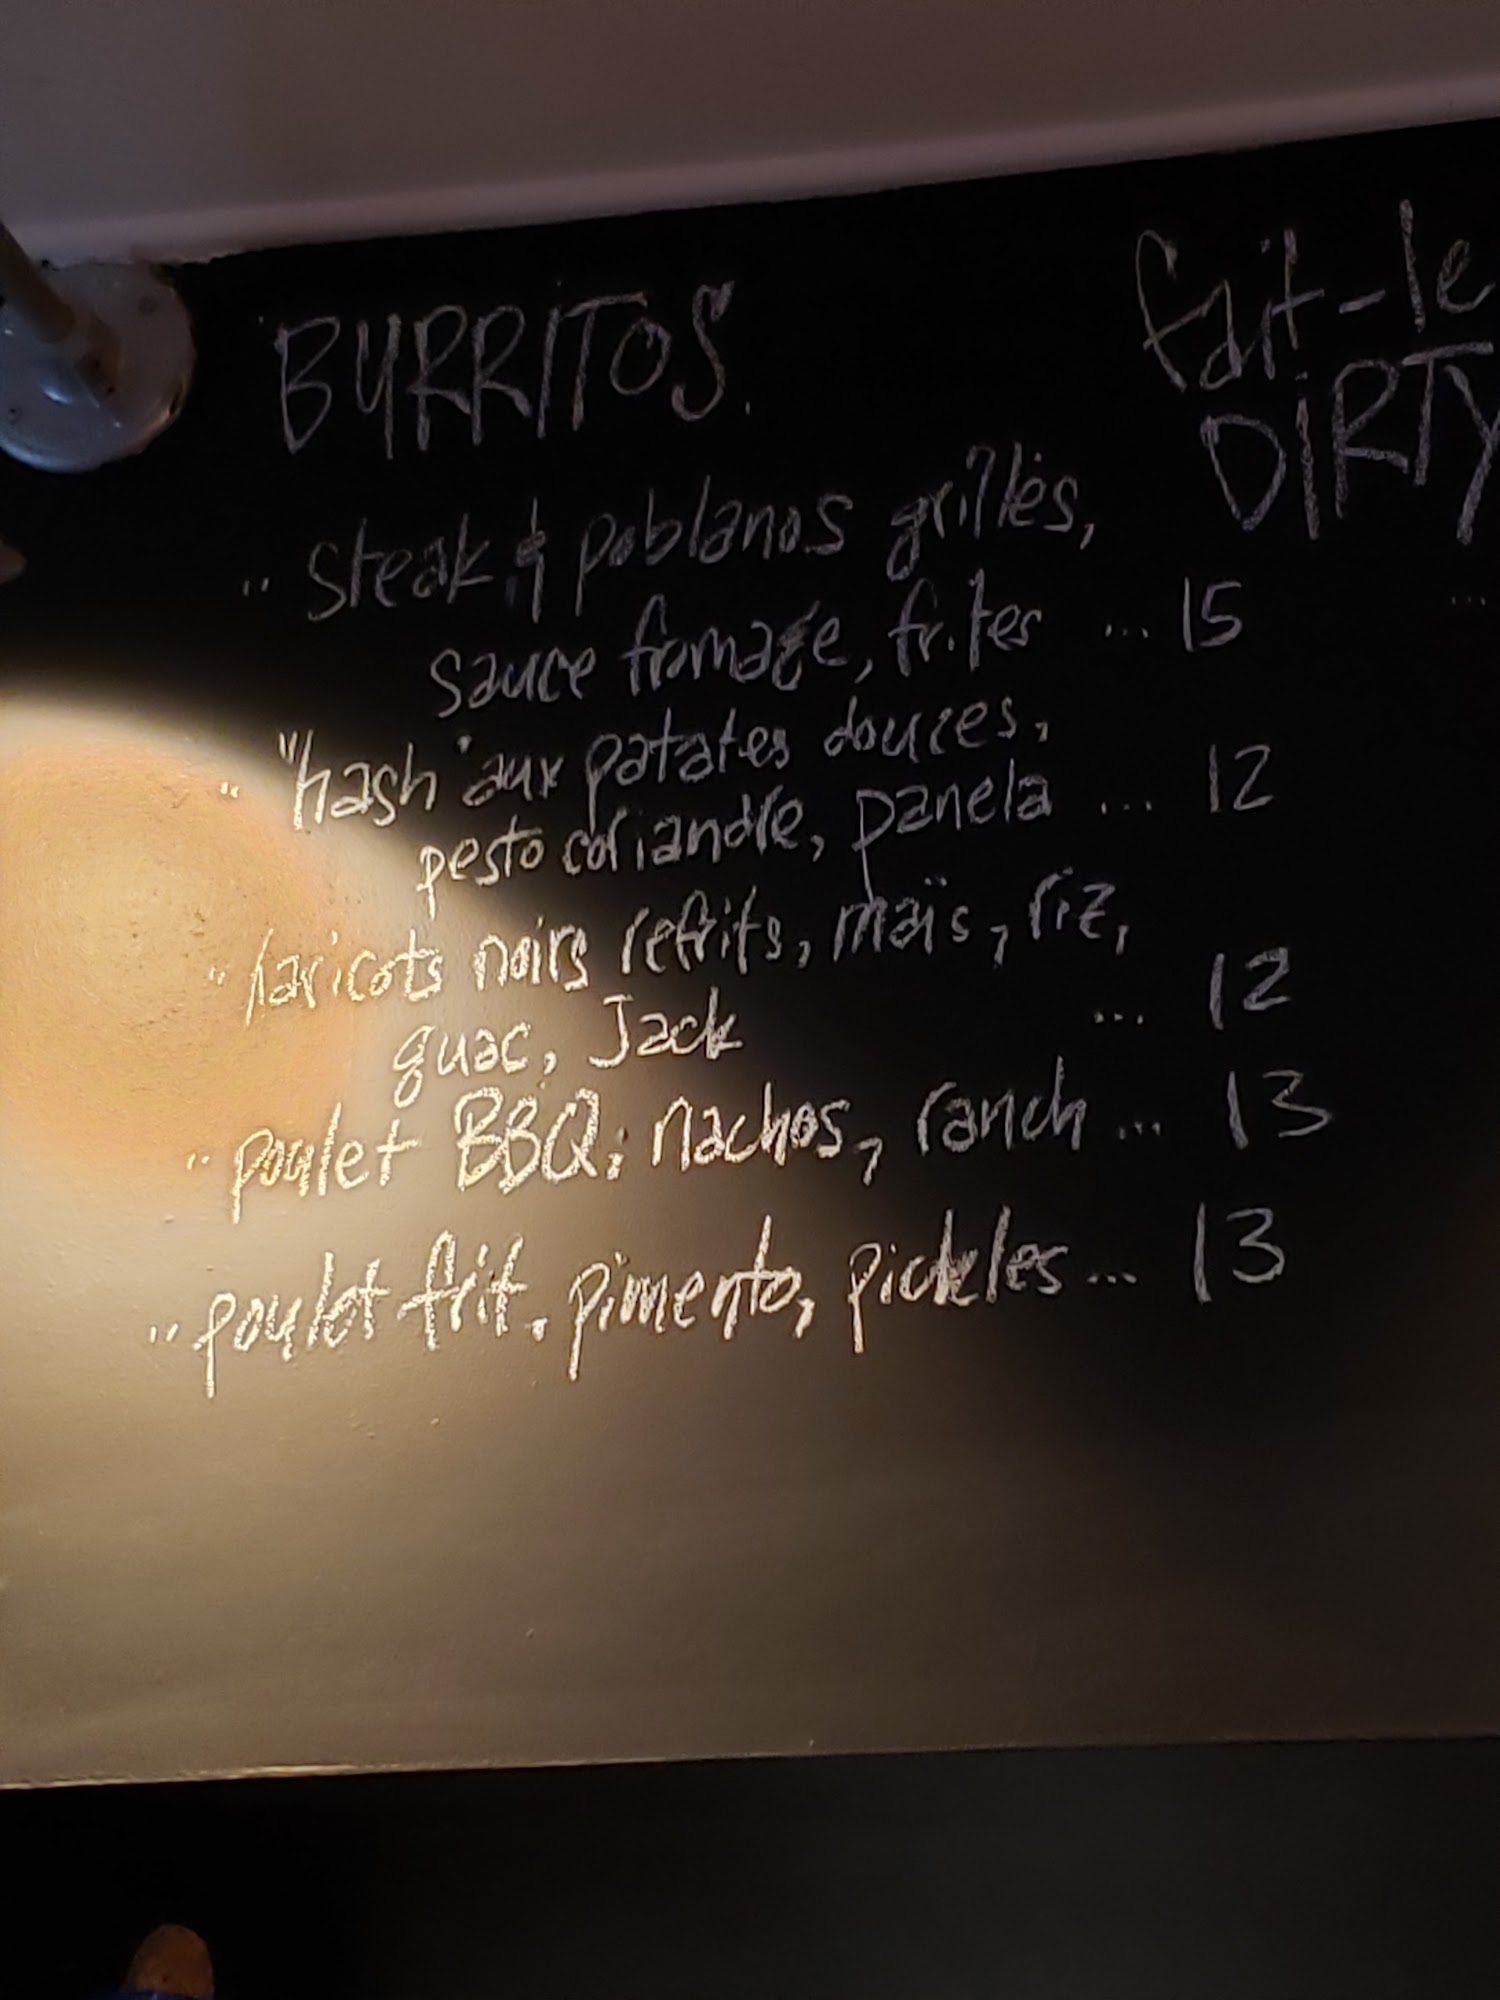 BURRITOS.
fait-le
DIRTY
" steak & poblanos grillés,
sauce fromage, frites ... 15
...
" "hash" aux patates douces,
pesto coriandre, panela ... 12
" haricots noirs refrits, maïs, riz,
guac, Jack ... 12
" poulet BBQ, nachos, ranch ... 13
" poulet frit, pimento, pickles ... 13